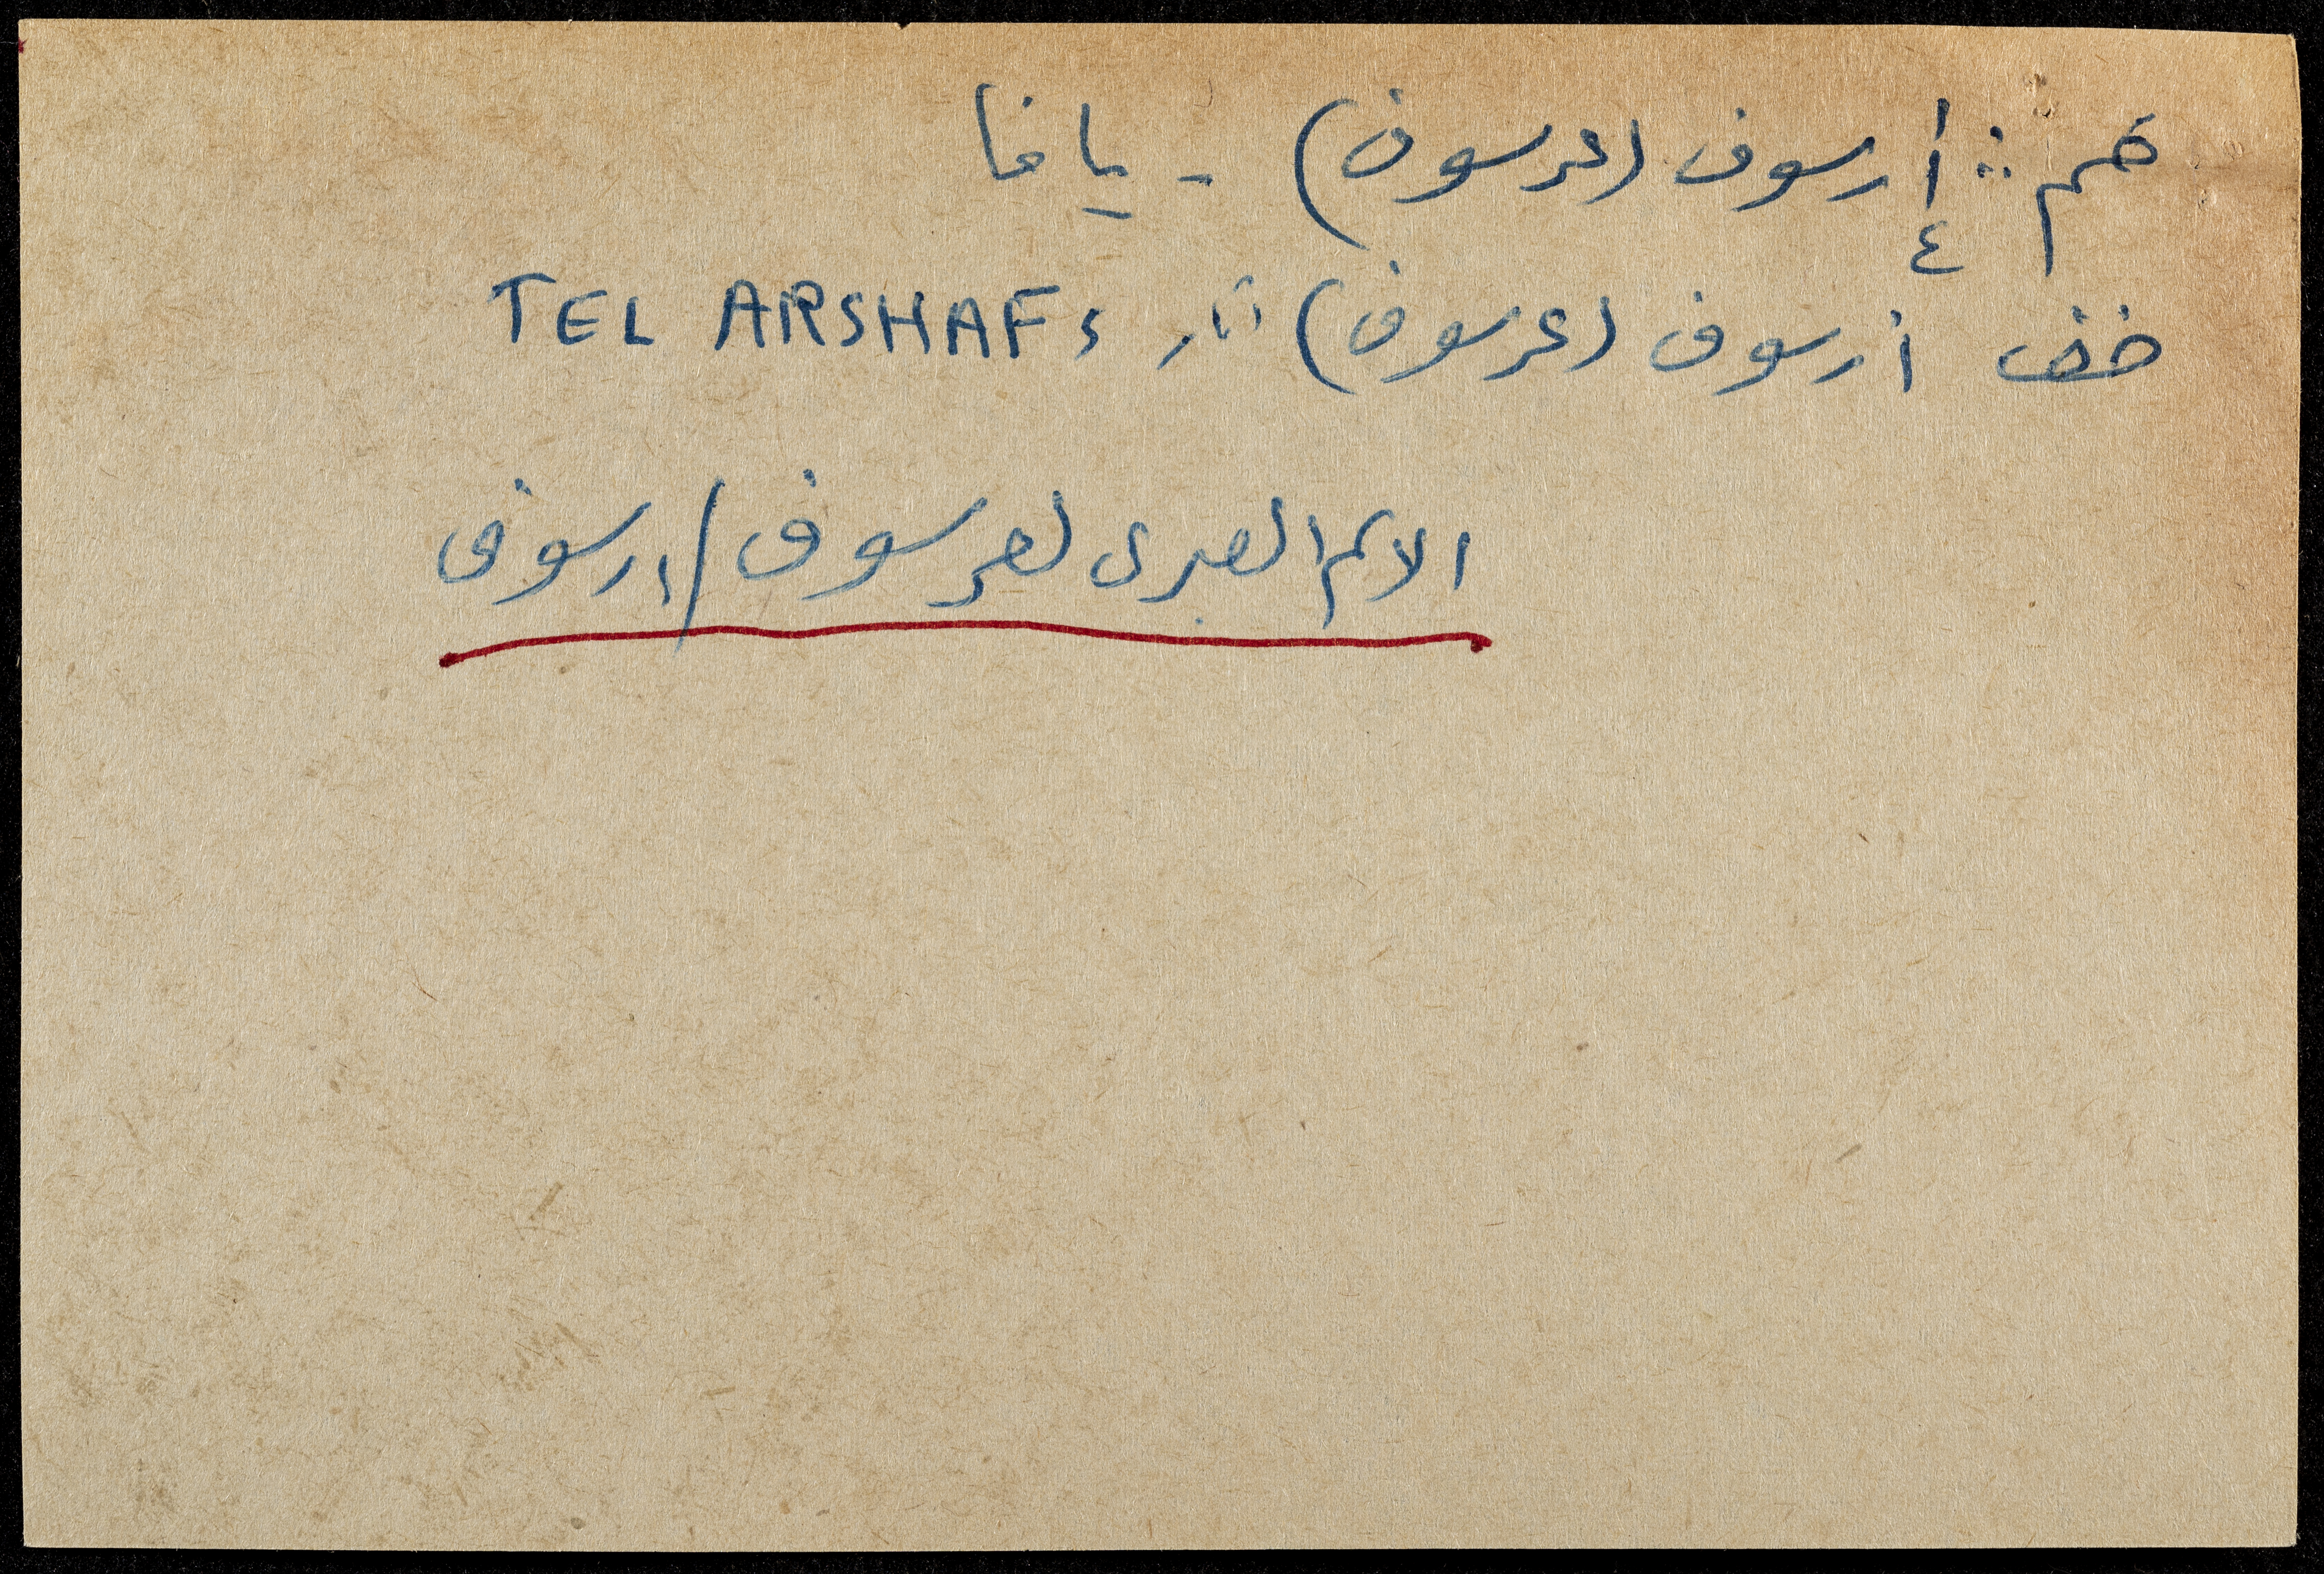 ضم : أرسوف (عرسوف) - يافا
٤
خف أرسوف (عرسوف) آثار TEL ARSHAF،
الاسم العبرى لعرسوف/ارسوف